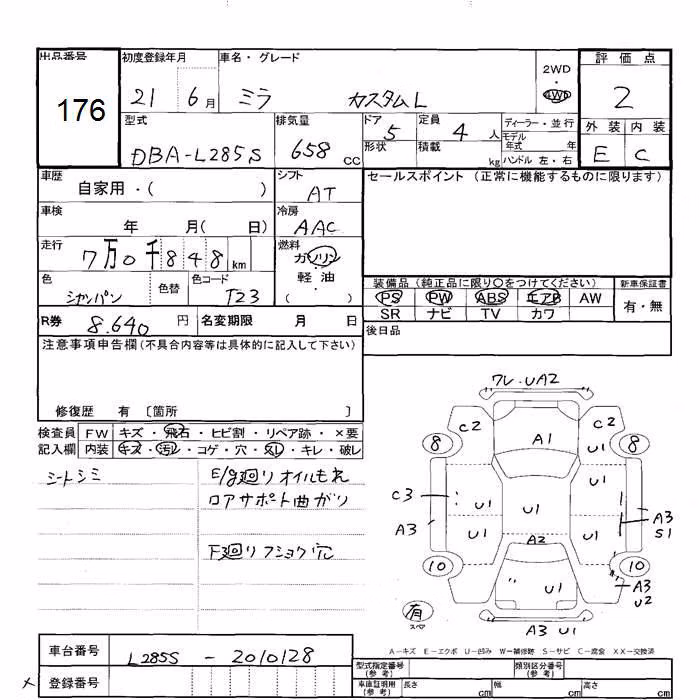 出品番号
176
初度登録年月
21 6月
車名・グレード
ミラ カスタムL
2WD
・
4WD
評価点
2
外装 内装
E C
型式
DBA-L285S
排気量
658 cc
ドア
5
形状
定員
4 人
積載 kg
ディーラー・並行
モデル年式 年
ハンドル 左・右
車歴
自家用・( )
シフト
AT
セールスポイント (正常に機能するものに限ります)
車検
年 月( 日)
冷房
AAC
走行
7万0千848km
燃料
ガソリン
・
軽・油
( )
色
シャンパン
色替
色コード
T23
装備品 (純正品に限り○をつけてください)
新車保証書
PS PW ABS エアB AW
有・無
SR ナビ TV カワ
R券
8.640 円
名変期限 月 日
後日品
注意事項申告欄(不具合内容等は具体的に記入して下さい)
修復歴 有 〔箇所 〕
検査員
記入欄
FW キズ・飛石・ヒビ割・リペア跡・×要
内装 キズ・汚レ・コゲ・穴・スレ・キレ・破レ
シートシミ
E/g廻りオイルもれ
ロアサポート曲がり
下廻りフショク穴
ワレ・UA2
C2 C2
A1
8 8
U1
C3 U1 U1 U1
A3 U1 U1
A3
S1
A2
10 10
U1
A3
U2
有
スペア
A3 U1
A-キズ E-エクボ U-凹み W-補修跡 S-サビ C-腐食 XX-交換済
車台番号
L285S - 2010128
登録番号
型式指定番号
(参考)
類別区分番号
(参考)
車庫証明用
(参考)
長さ cm
幅 cm
高さ cm